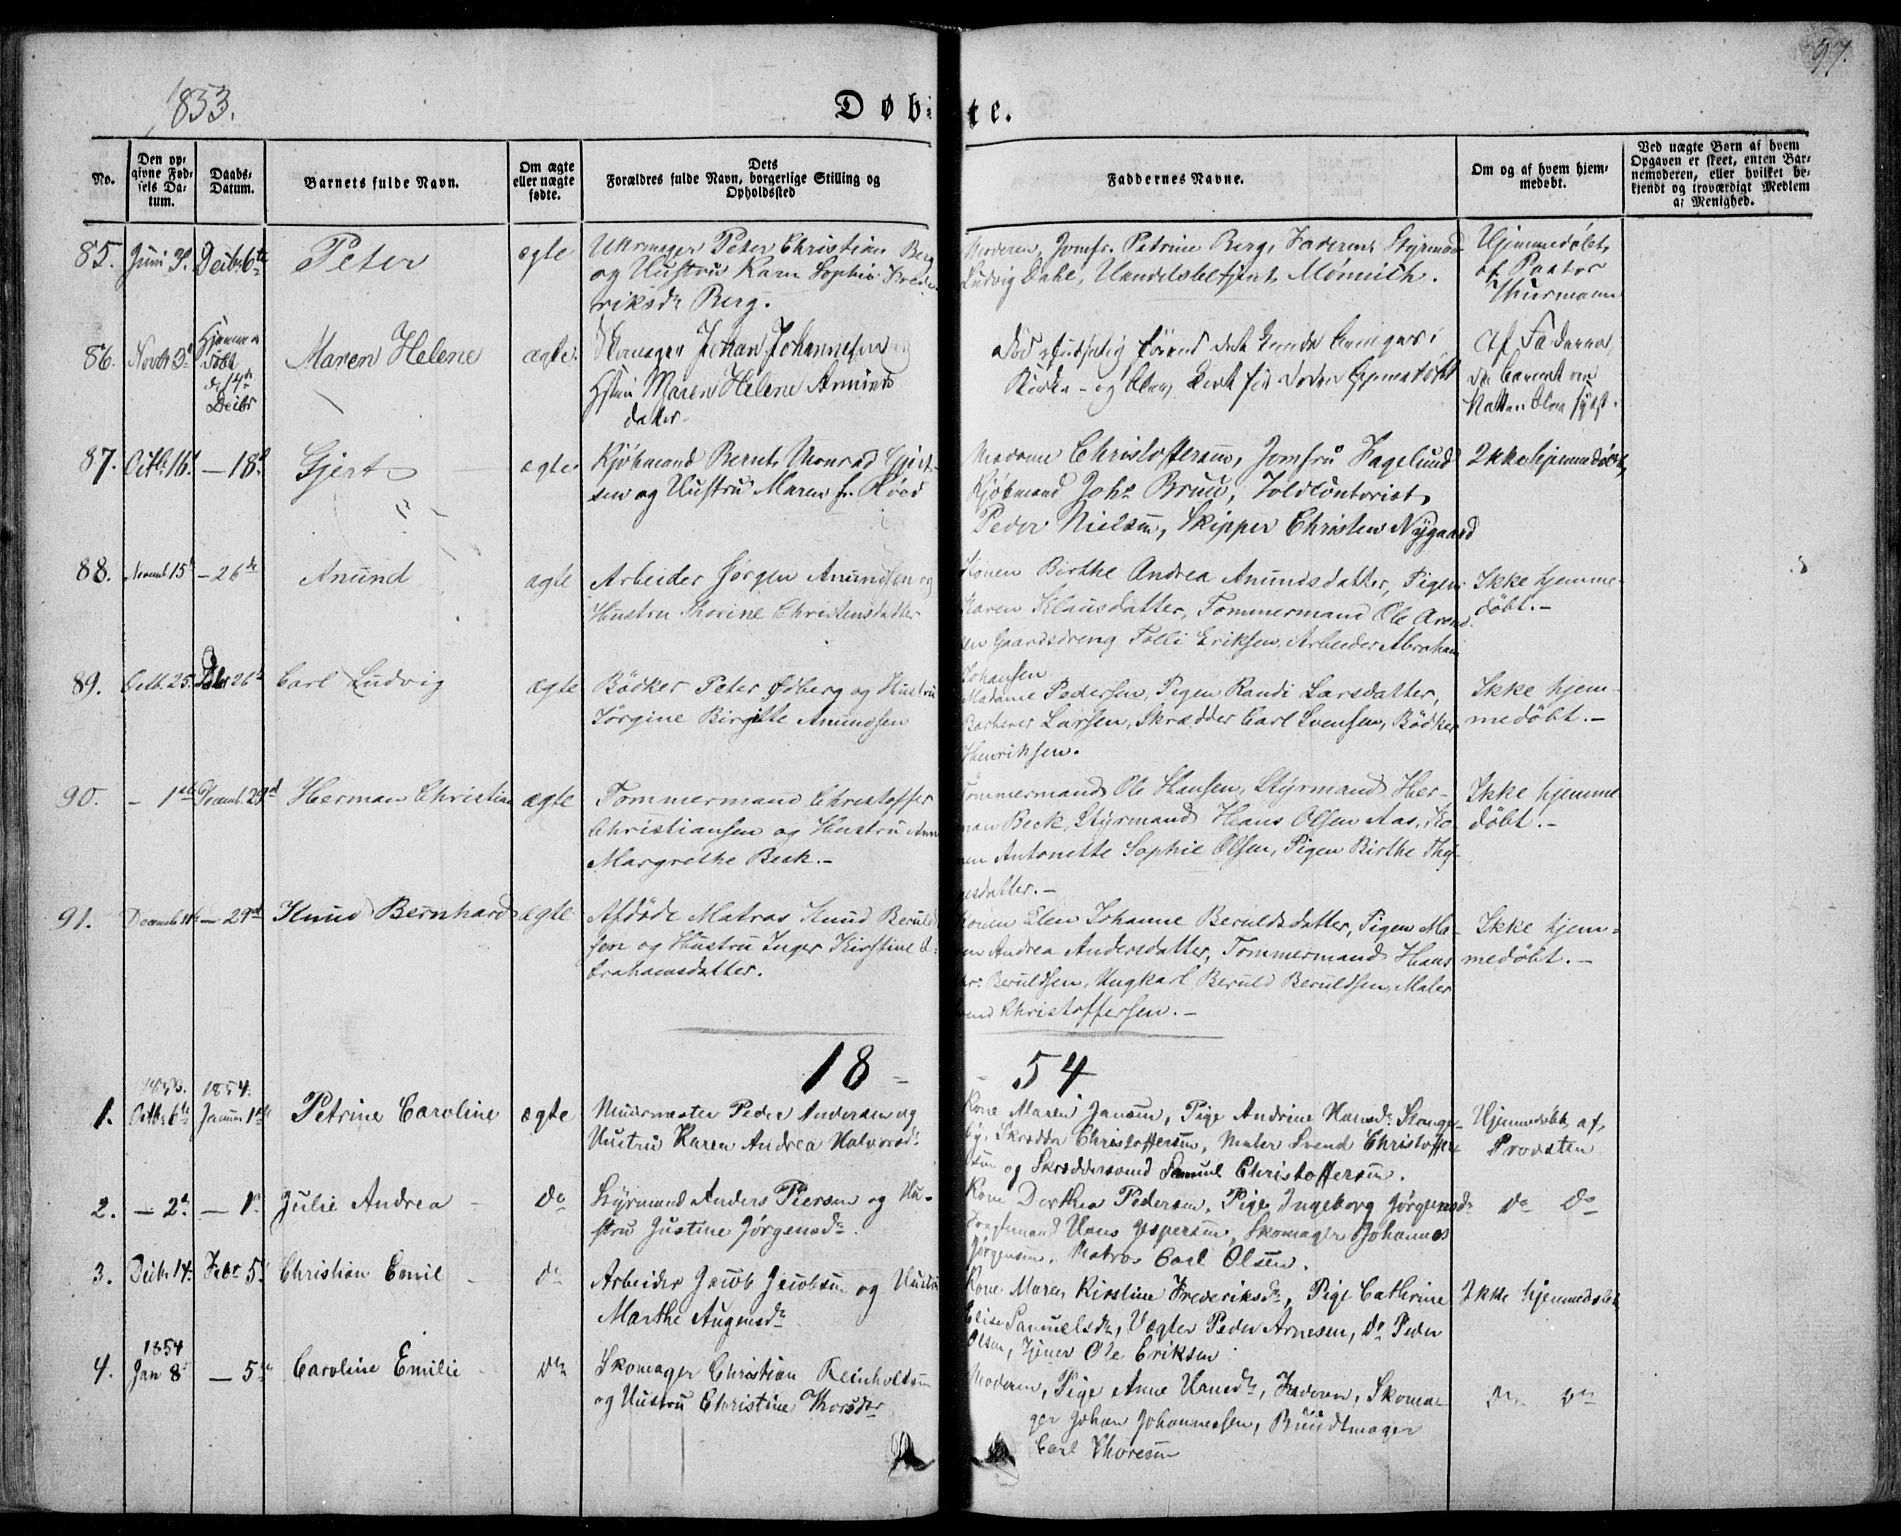 97.
1853.
Døbte.
No.
Den opgivne Fødsels Datum.
Daabs-Datum.
Barnets fulde Navn.
Om ægte eller uægte fødte.
Dets Forældres fulde Navn, borgerlige Stilling og Opholdssted
Faddernes Navne.
Om og af hvem hjemmedøbt.
Ved uægte Børn af hvem Opgaven er skeet, enten Barnemoderen, eller hvilket bekjendt og troværdigt Medlem af Menighed.
85. Juni 3. Decbr 6te Peter ægte Uhrmager Peter Christian Berg
og Hustru Karn Sophie Frede-
riksdr Berg.
Moderen, Jomfr. Petrine Berg, Faderen, Styrmand
Ludvig Dahl, Handelsbetjent Mønnich.
Hjemmedøbt
af Pastor
Thurmann
86. Novbr 3 Hjemme
døbt
d 14de
Decbr
Maren Helene ægte. Skomager Johan Johannesen og
Hstru Maren Helene Amunds
datter.
Kirke- og blev
Af Faderen
da Barnet om
Natten blev sygt.
87. Octbr 16. — 18 Gjert ægte Kjøbmand Bernt Monrad Gjert-
sen og Hustru Maren f. Røed
Madame Christoffersen, Jomfru Fagelund
Kjøbmand Johs Bruu, Toldcontorist
Peder Nielsen, Skipper Christen Nygaard
Ikke hjemmedøbt
88. Novemb 15 — 26de Anund ægte Arbeider Jørgen Anundsen og
Hustru Thorine Christensdatter
Konen Birthe Andrea Anundsdatter, Pigen
Karen Klausdatter, Tømmermand Ole Arend
sen Gaardsdreng Tolli Eriksen, Arbeider Abraham
Johansen
Ikke hjemme-
døbt.-
89. Octb. 25. Decbr 26d Carl Ludvig ægte Bødker Peter Ødberg og Hustru
Jørgine Birgitte Amundsen
Madame Pedersen, Pigen Randi Larsdatter,
Barberer Larsen, Skrædder Carl Svensen, Bødker
Henriksen.
Ikke hjem-
medøbt.-
90. - 1ste Decemb. 29d Herman Christian ægte Tømmermand Christoffer
Christiansen og Hustru Ann
Margrethe Beck.-
Tømmermand Ole Hansen, Styrmand Her-
man Beck, Styrmand Hans Olsen Aas, Ko-
nen Antonette Sophie Olsen, Pigen Birthe They-
esdatter.-
Ikke hjemme
døbt.-
91. Decemb 11te — 29d Knud Bernhard ægte Afdøde Matros Knud Beruld
sen og Hustru Inger Kirstine A-
brahamsdatter.
Konen Elen Johanne Beruldsdatter, Pigen Ma-
ren Andrea Andersdatter, Tømmermand Hans
Chr: Beruldsen, Ungkarl Beruld Beruldsen, Maler
Svend Christoffersen.-
Ikke hjem-
medøbt.-
18-54
1. 1853. Octbr 6te 1854. Januar 1ste Petrine Caroline ægte Muurmester Peder Andersen og
Hustru Karen Andrea Halvorsdr
Kone Maren Jansen, Pige Andrine Hansdr Skonge-
by, Skrædder Christoffersen, Maler Svend Christoffer
sen og Skræddersvend Samuel Christoffersen.
Hjemmedøbt af
Provsten
2. — 2d — 1 Julie Andrea do Styrmand Anders Peersen og Hu-
stru Justine Jørgensdr.
Kone Dorthea Pedersen, Pige Ingeborg Jørgensdr
Hans Jespersen, Skomager Johannes
Jørgensen, Matros Carl Olsen.
do do
3. Decbr 14. Febr 5 Christian Emil do Arbeider Jacob Jacobsen og Hustru
Marthe Augensdr
Kone Maren Kirstine Frederiksdr, Pige Cathrine
Elise Samuelsdr, Vægter Peder Arnesen, do Peder
Olsen, Tjener Ole Eriksen
Ikke hjemmedøbt
4. 1854 Jan 8 — 5te Caroline Emilie do Skomager Christian Reinholdsen
og Hustru Christine Thorsdr
Moderen, Pige Anne Hansdr, Faderen, Skoma-
ger Johan Johannessen, Bundtmager
Carl Thoresen
do do